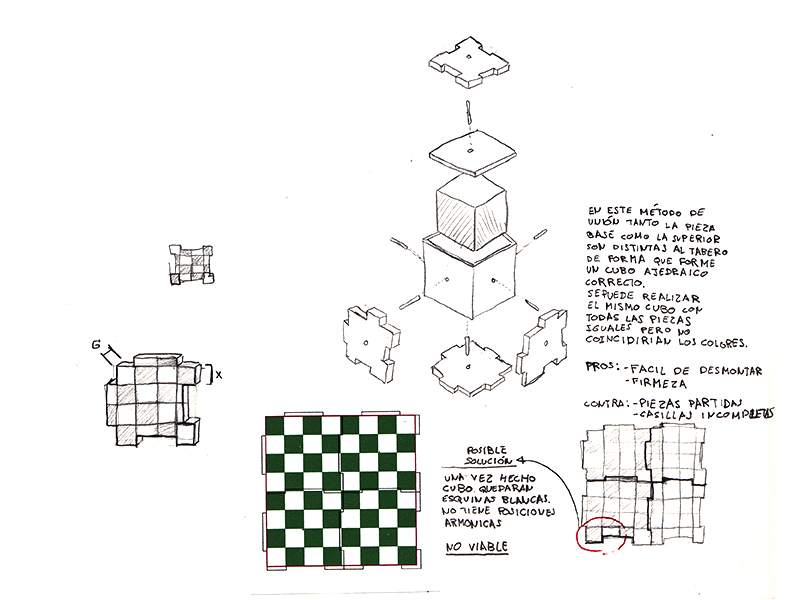 EN ESTE MÉTODO DE
UNIÓN TANTO LA PIEZA
BASE COMO LA SUPERIOR
SON DISTINTAS AL TABERO
DE FORMA QUE FORME
UN CUBO AJEDRAICO
CORRECTO.
SEPUEDE REALIZAR
EL MISMO CUBO CON
TODAS LAS PIEZAS
IGUALES PERO NO
COINCIDIRIAN LOS COLORES.
PROS:-FACIL DE DESMONTAR
-FIRMEZA
CONTRA:-PIEZAS PARTIDAS
-CASILLAS INCOMPLETAS
G
X
POSIBLE
SOLUCIÓN
UNA VEZ HECHO
CUBO QUEDARAN
ESQUINAS BLANCAS.
NO TIENE POSICIONES
ARMONICAS
NO VIABLE